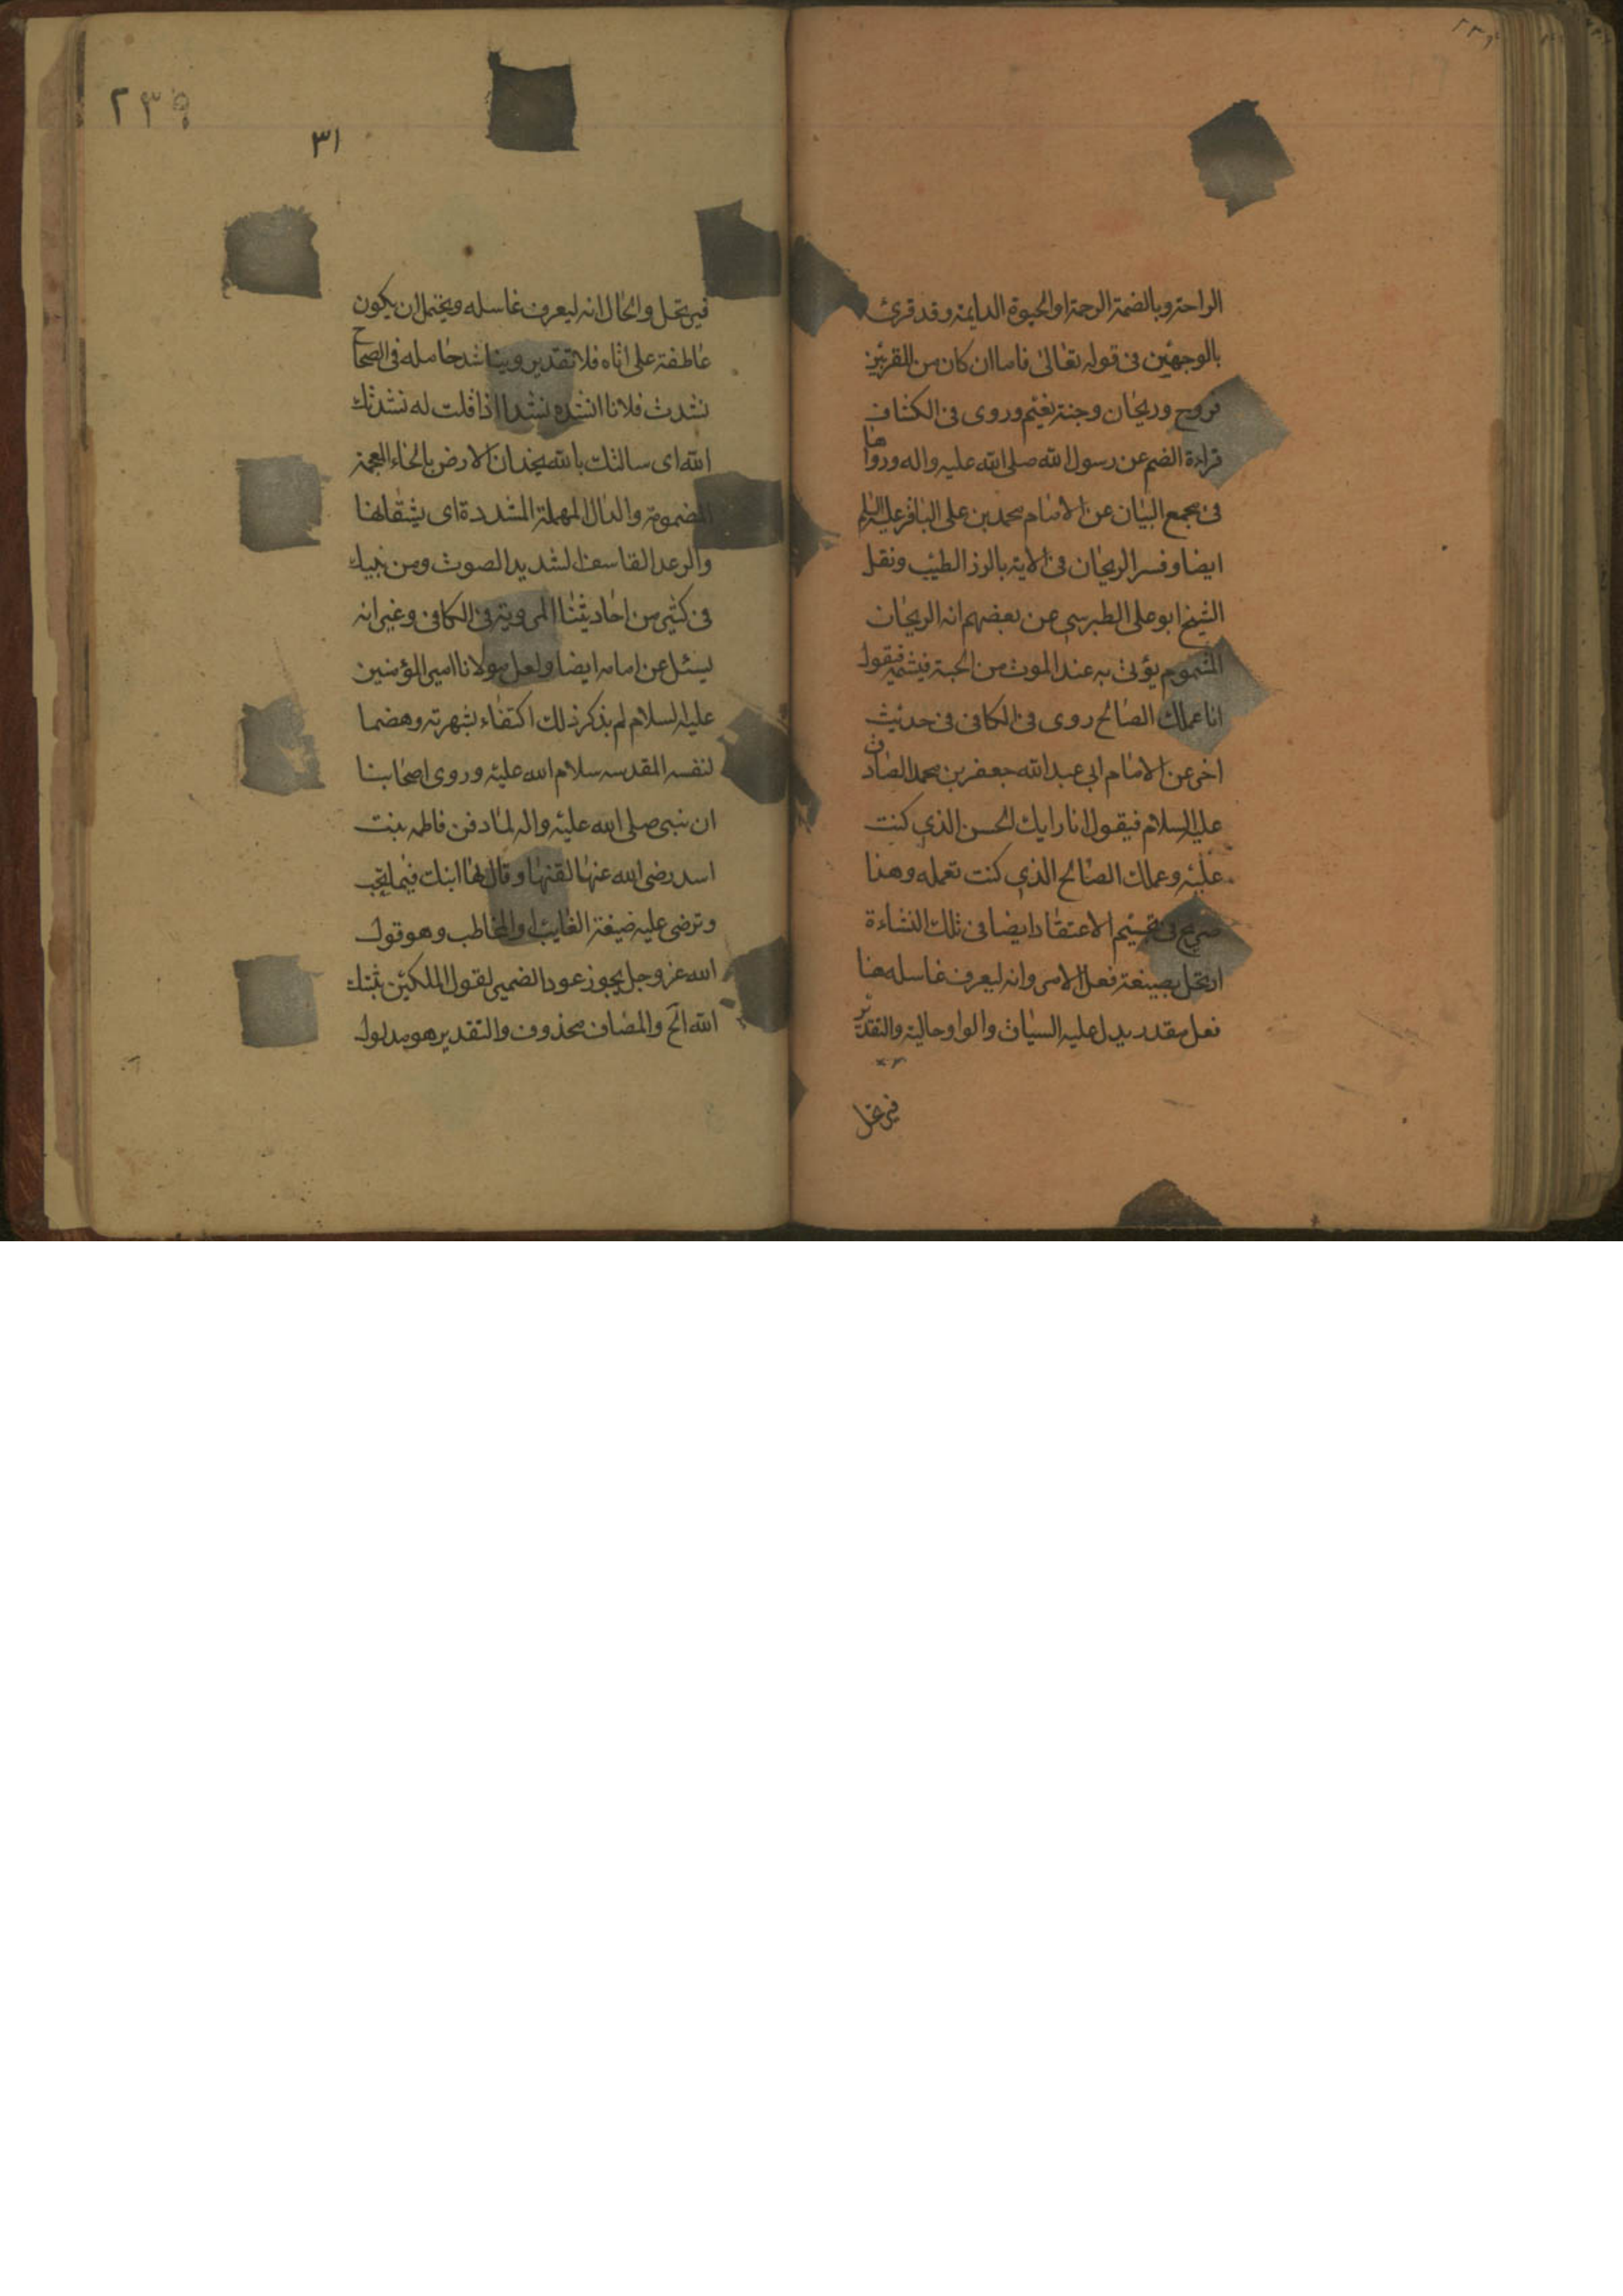 الراحة وبالضمة الرحمة او الحيوة الدايمة وقد قرئ
بالوجهين فى قوله تعالى فاما ان كان من المقربين
فروح وريحان وجنة نعيم وروى فى الكشاف
قراءة الضم عن رسول الله صلى الله عليه واله ورواها
فى مجمع البيان عن الامام محمد بن على الباقر عليه السلم
ايضا وفسر الريحان فى الاية بالرزق الطيب ونقل
الشيخ ابو على الطبرسى عن بعضهم انه الريحان
المشموم يؤتى به عند الموت من الجنة فيشمه فيقول
انا عملك الصالح روى فى الكافى فى حديث
اخر عن الامام ابى عبد الله جعفر بن محمد الصادق
عليه السلام فيقول انا رايك الحسن الذى كنت
عليه وعملك الصالح الذى كنت تعمله وهذا
صريح فى تجسيم الاعتقاد ايضا فى تلك النشاءة
ارتحل بصيغة فعل الامر وانه ليعرف غاسله هنا
فعل مقدر يدل عليه السياق والواو حالية والتقدير
فيرتحل
٢٣٩
٣١
فيرتحل والحال انه ليعرف غاسله ويحتمل ان يكون
عاطفة على اتاه فلا تقدير ويناشد حامله فى الصحاح
نشدت فلانا انشده نشدا اذا قلت له نشدتك
الله اى سالتك بالله يخدان الارض بالخاء المعجمة
المضمومة والدال المهملة المشددة اى يشقانها
والرعد القاسف الشديد الصوت ومن نبيك
فى كثير من احاديثنا المروية فى الكافى وغيرانه
يسئل عن امامه ايضا ولعل مولانا امير المؤمنين
عليه السلام لم يذكر ذلك اكتفاء بشهرته وهضما
لنفسه المقدسه سلام الله عليه وروى اصحابنا
ان نبى صلى الله عليه واله لما دفن فاطمه بنت
اسد رضى الله عنها لقنها وقال لها ابنك فيما تحب
وترضى عليه صيغة الغايب او المخاطب وهو قول
الله عز وجل يجوز عود الضمير لقول الملكين ثبتك
الله الخ والمضاف محذوف والتقدير هو مدلول